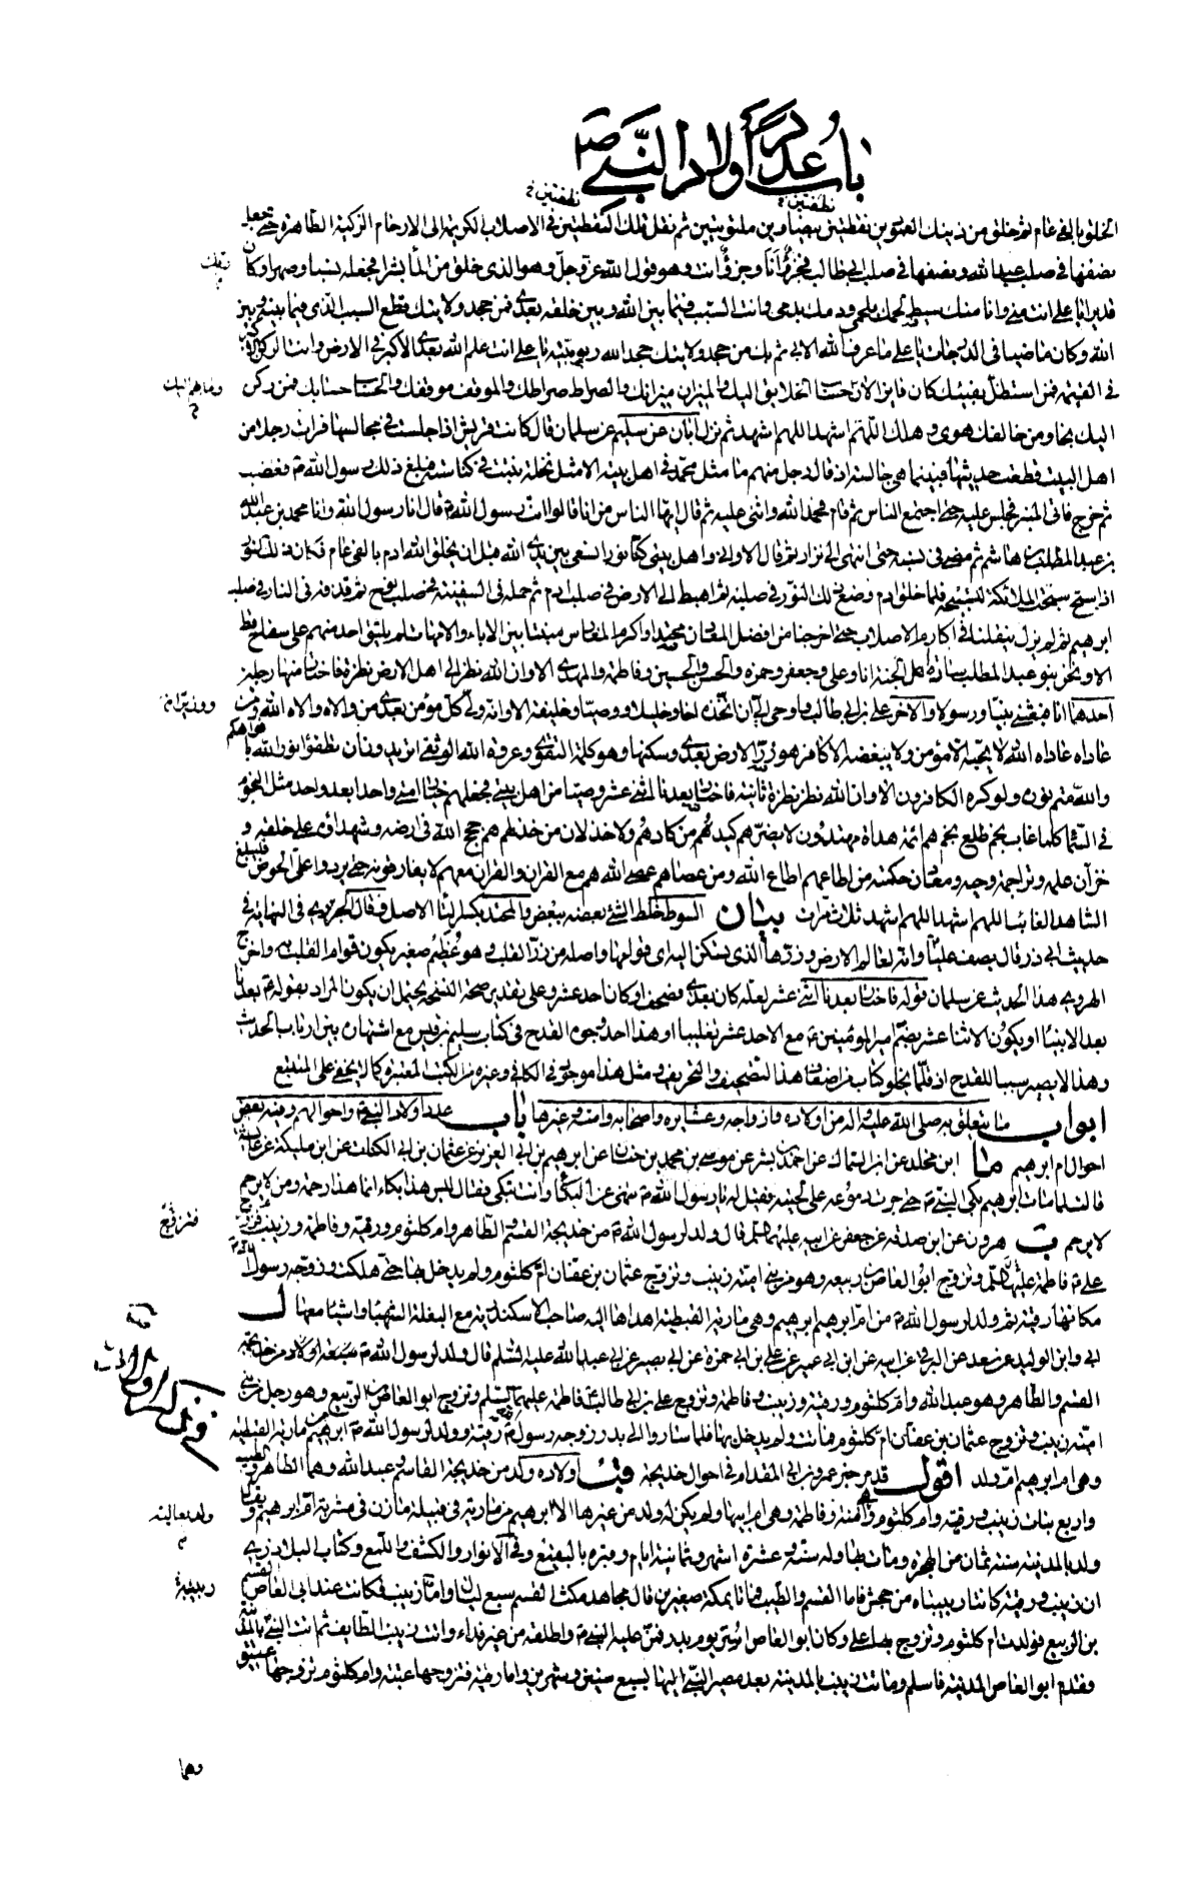 باب عدد أولاد النبي ص
نطفتين
نطفتين
الخلق بالفي عام ثم خلق من ذينك النورين نقطتين بيضاوين ملتويتين ثم نقل تلك النقطتين في الاصلاب الكريمة الى الارحام الزكية الطاهرة حتى جعل
نصفها في صلب عبد الله ونصفها في صلب ابي طالب فجزء أنا وجزء أنت وهو قول الله عز وجل وهو الذي خلق من الماء بشرا فجعله نسبا وصهرا وكان
قديرا يا علي انت مني وانا منك سيط لحمك بلحمي ودمك بدمي وانت السبب فيما بين الله وبين خلقه بعدي فمن جحد ولايتك قطع السبب الذي فيما بينه وبين
الله وكان ماضيا في الدرجات يا علي ما عرف الله الا بي ثم بك من جحد ولايتك جحد الله ربوبيته يا علي انت علم الله بعدي الاكبر في الارض وانت الركن الاكبر
في القيمة فمن استظل بفيئك كان فايزا لان حساب الخلايق اليك والميزان ميزانك والصراط صراطك والموقف موقفك والحساب حسابك فمن ركن
وما بهم اليك
اليك نجا ومن خالفك هوى وهلك اللهم اشهد اللهم اشهد ثم نزل أبان عن سليم عن سلمان قال كانت قريش اذا جلست في مجالسها فرأت رجلا من
اهل البيت قطعت حديثها فبينما هي جالسة اذ قال رجل منهم ما مثل محمد في اهل بيته الا مثل نخلة نبتت في كناسة فبلغ ذلك رسول الله ص فغضب
ثم خرج فاتى المنبر فجلس عليه حتى اجتمع الناس ثم قام فحمد الله واثنى عليه ثم قال ايها الناس من انا قالوا انت رسول الله ص قال انا رسول الله وانا محمد بن عبد الله
بن عبد المطلب بن هاشم ثم مضى في نسبه حتى انتهى الى نزار ثم قال الا واني واهل بيتي كنا نورا نسعى بين يدي الله قبل ان يخلق الله ادم بالفي عام فكان ذلك النور
اذا سبح سبحت الملائكة لتسبيحه فلما خلق ادم وضع ذلك النور في صلبه ثم اهبط الى الارض في صلب ادم ثم حمله في السفينة في صلب نوح ثم قذفه في النار في صلب
ابرهيم ثم لم يزل ينقلنا في اكارم الاصلاب حتى اخرجنا من افضل المعادن محتدا واكرم المغارس منبتا بين الاباء والامهات لم يلتق احد منهم على سفاح قط
الا ونحن بنو عبد المطلب سادة اهل الجنة انا وعلي وجعفر وحمزه والحسن والحسين وفاطمة والمهدي الا وان الله نظر الى اهل الارض نظرة فاختار منها رجلين
احدهما انا فبعثني نبيا ورسولا والآخر علي بن ابي طالب واوحى الي ان اتخذه اخا وخليلا ووصيا وخليفة الا وانه ولي كل مؤمن بعدي من والاه والاه الله ومن
ووزيرا
عاداه عاداه الله لا يحبه الا مؤمن ولا يبغضه الا كافر هو زر الارض بعدي وسكنها وهو كلمة التقوى وعروة الله الوثقى اتريدون ان تطفؤا نور الله بافواهكم
والله متم نوره ولو كره الكافرون الا وان الله نظر نظرة ثانية فاختار بعدنا اثنى عشر وصيا من اهل بيتي فجعلهم خيار امتي واحدا بعد واحد مثل النجوم
في السماء كلما غاب نجم طلع نجم هم ائمة هداة مهتدون لا يضرهم كيد من كادهم ولا خذلان من خذلهم هم حجج الله في ارضه وشهداؤه على خلقه و
خزان علمه وتراجمة وحيه ومعادن حكمته من اطاعهم اطاع الله ومن عصاهم عصى الله هم مع القران والقران معهم لا يفارقونه حتى يردوا على الحوض فليبلغ
الشاهد الغائب اللهم اشهد اللهم اشهد ثلاث مرات بيان السوط خلط الشيء بعضه ببعض والمحتد بكسر التاء الاصل وقال الجزري في النهاية في
حديث ابي ذر قال يصف عليا وانه لعالم الارض وزرها الذي تسكن اليه اي قوامها واصله من زر القلب وهو عظيم صغير يكون قوام القلب به واخرج
الهروي هذا الحديث عن سلمان قوله فاختار بعدنا اثنى عشر لعله كان بعدي فصحف او كان احد عشر وعلى تقدير صحة النسخة يحتمل ان يكون المراد بقوله ص بعدنا
بعد الانبياء او يكون الاثنا عشر بضم امير المؤمنين ع مع الاحد عشر تغليبا وهذا احد وجوه القدح في كتاب سليم بن قيس مع اشتهاره بين ارباب الحديث
وهذا لا يصير سببا للقدح اذ قلما يخلو كتاب من اضعاف هذا التصحيف والتحريف ومثل هذا موجود في الكافي وغيره من الكتب المعتبرة كما لا يخفى على المتتبع
ابواب ما يتعلق به صلى الله عليه واله من اولاده وازواجه وعشايره واصحابه وامته وغيرها باب عدد اولاد النبي ص واحوالهم وفيه بعض
احوال ام ابرهيم ما ابن مخلد عن ابن السماك عن احمد بن بشر عن موسى بن محمد بن حنان عن ابرهيم بن ابي العزيز عن عثمان بن ابي الكنات عن ابن مليكة عن عايشة
قالت لما مات ابرهيم بكى النبي ص حتى جرت دموعه على لحيته فقيل له يا رسول الله ص تنهى عن البكاء وانت تبكي فقال ليس هذا بكاء انما هذا رحمة ومن لا يرحم
لا يرحم ب هرون عن ابن صدقه عن جعفر عن ابيه عليهما السلم قال ولد لرسول الله ص من خديجة القسم والطاهر وام كلثوم ورقية وفاطمة وزينب فتزوج
فتزوج
علي ع فاطمة عليها السلم وتزوج ابو العاص بن ربيعه وهو من بني امية زينب وتزوج عثمان بن عفان ام كلثوم ولم يدخل بها حتى هلكت وزوجه رسول الله ص
مكانها رقية ثم ولد لرسول الله ص من ام ابرهيم ابرهيم وهي مارية القبطية اهداها اليه صاحب الاسكندرية مع البغلة الشهباء واشياء معها ل
ابي وابن الوليد عن سعد عن البرقي عن ابيه عن ابن ابي عمير عن علي بن ابي حمزة عن ابي بصير عن ابي عبد الله عليه السلم قال ولد لرسول الله ص من خديجة
القسم والطاهر وهو عبد الله وام كلثوم ورقية وزينب وفاطمة وتزوج علي بن ابي طالب ع فاطمة عليهما السلم وتزوج ابو العاص بن الربيع وهو رجل من بني
امية زينب وتزوج عثمان بن عفان ام كلثوم فماتت ولم يدخل بها فلما ساروا الى بدر زوجه رسول الله ص رقية وولد لرسول الله ص ابرهيم من مارية القبطية
وهي ام ابرهيم ام ولد اقول قد مر خبر عمرو بن ابي المقدام في احوال خديجة قب اولاده ولد من خديجة القاسم وعبد الله وهما الطاهر والطيب
واربع بنات زينب ورقية وام كلثوم وهي امنة وفاطمة وهي ام ابيها ولم يكن له ولد من غيرها الا ابرهيم من مارية في قبيلة مازن في مشربة ام ابرهيم ويقال
ولد بالعالية
ولد بالمدينة سنة ثمان من الهجرة ومات بها وله سنة وعشرة اشهر وثمانية ايام وقبره بالبقيع وفي الانوار والكشف واللمع وكتاب البلاذري
ان زينب ورقية كانتا ربيبتيه من جحش فاما القسم والطيب فماتا بمكة صغيرين قال مجاهد مكث القسم سبع ليال واما زينب فكانت عند ابي العاص القسم
ربيبة
بن الربيع فولدت ام كلثوم وتزوج بها علي وكان ابو العاص اسر يوم بدر فمن عليه النبي ص واطلقه من غير فداء واتت زينب الطايف ثم اتت النبي ص بالمدينة
وقدم ابو العاص المدينة فاسلم وماتت زينب بالمدينة بعد مصير النبي اليها بسبع سنين وشهرين واما رقية فتزوجها عتبة وام كلثوم تزوجها عتيق
وهما